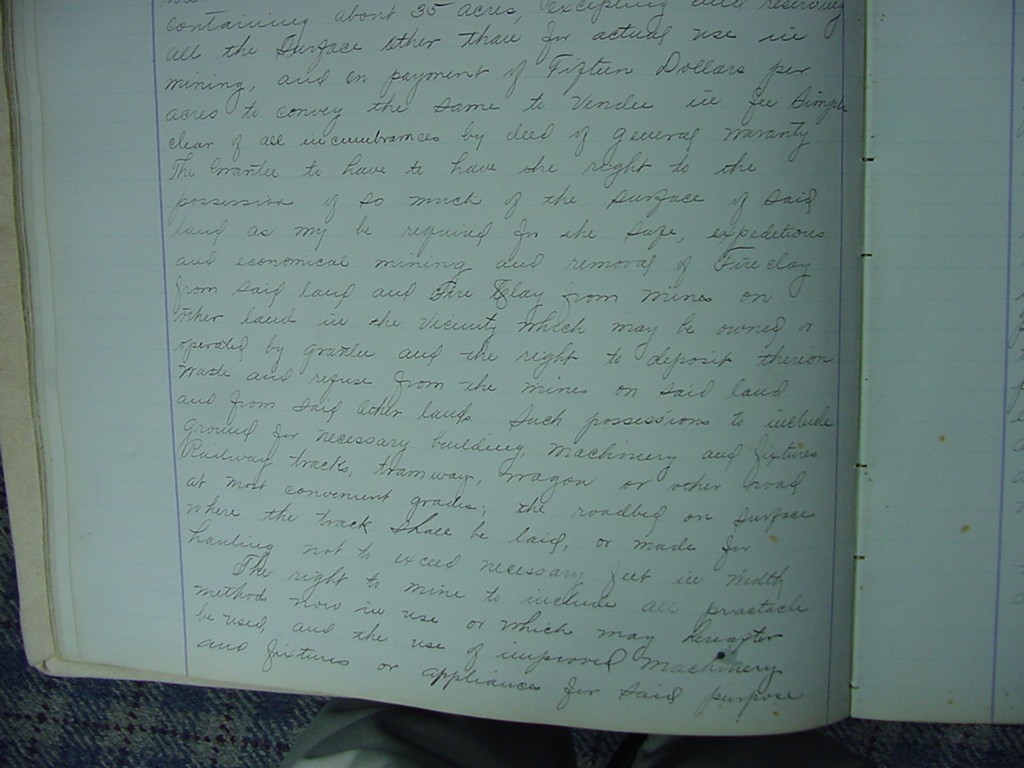 containing about 35 acres, excepting and reserving
all the Surface other than for actual use in
mining, and on payment of Fifteen Dollars per
acres to convey the same to Vendee in fee simple
clear of all incumbrances by deed of general waranty
The Grantee to have to have the right to the
possession of so much of the surface of said
land as my be required for the safe, expeditious
and economical mining and removal of Fire clay
from said land and Fire Clay from mines on
other land in the vicinity which may be owned or
operated by grantee and the right to deposit thereon
waste and refuse from the mines on said land
and from said other lands. Such possessions to include
ground for necessary building, machinery and fixtures
Railway tracks, tramway, wagon or other road
at most convenient grades; the roadbed on surface
where the track shall be laid, or made for
hauling not to exceed necessary feet in width
The right to mine to include all practacle
methods now in use or which may hereafter
be used, and the use of improved machinery
and fixtures or appliances for said purpose